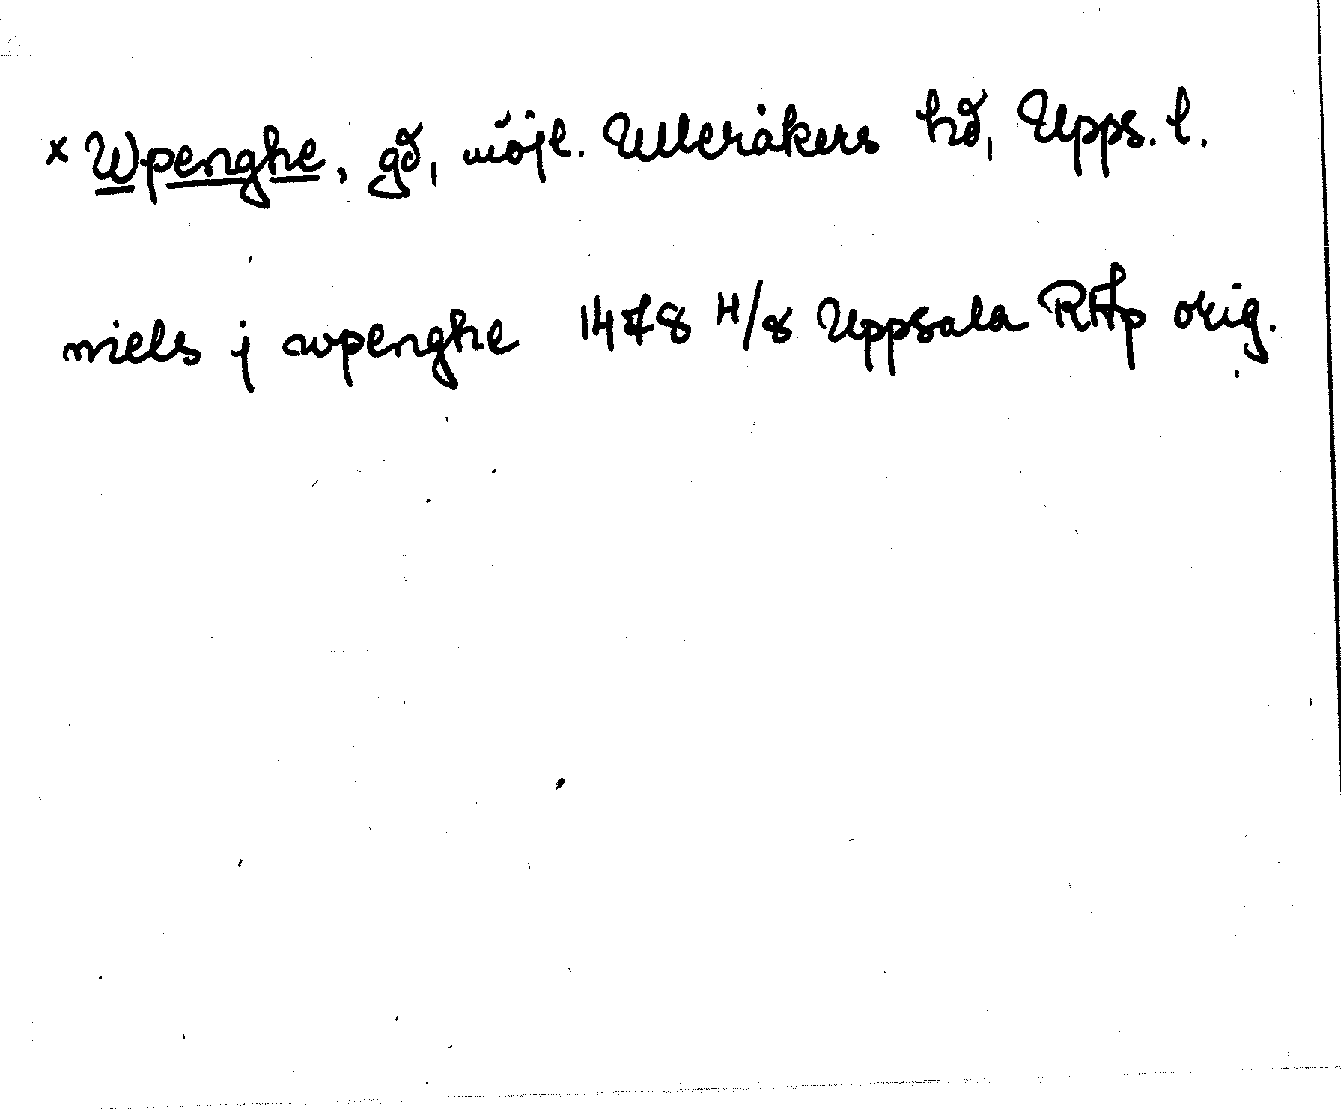 x Wpenghe, gd, möjl. Ulleråkers hd, Upps. l.
niels j wpenghe 1478 4/8 Uppsala RAp orig.